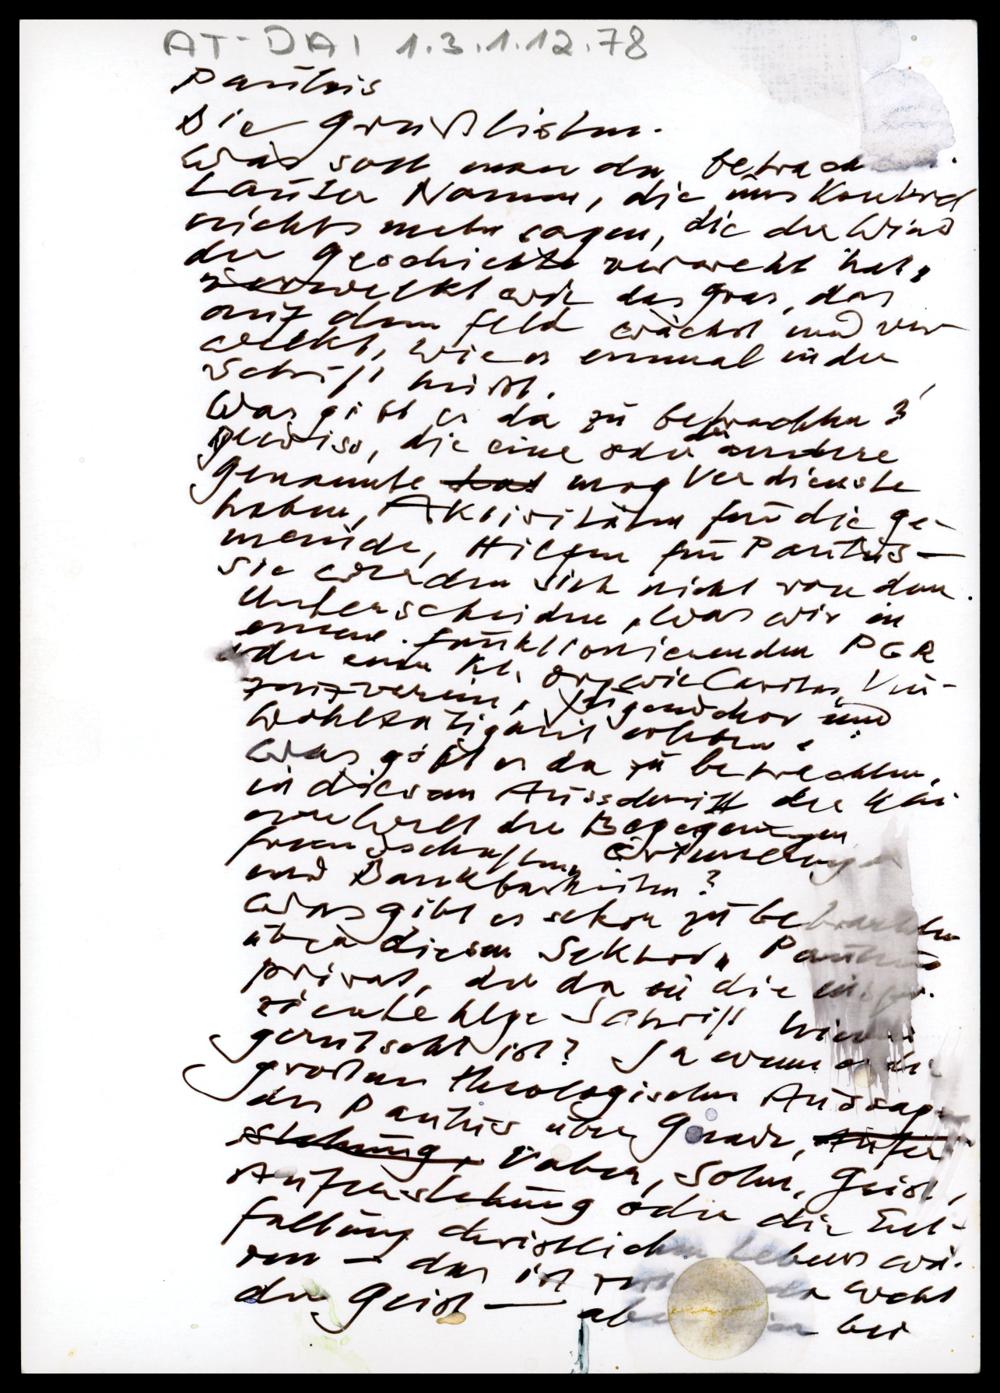 AT-DAI 1.3.1.12.78
Paulus
Die Grußlisten.
Was soll man da betrach
Lauter Namen, die uns konkret
nichts mehr sagen, die der Wind
der Geschichte verweht hat,
verwelkt wie das Gras, das
auf dem Feld wächst und ver
welkt, wie es einmal in der
Schrift heißt.
Was gibt es da zu betrachten?
Gewiss, die eine oder der andere
Genannte hat mag Verdienste
haben, Aktivitäten für die Ge-
meinde, Hilfen für Paulus –
Sie werden sich nicht von dem
unterscheiden, was wir in
einem funktionierenden PGR
oder einer kl. Org. wie Caritas, Vin-
zenzverein, Jugendchor und
Wohltätigkeit erleben.
Was gibt es da zu betrachten,
in diesem Ausschnitt der
der Begegnungen
Freundschaften, Erinnerungen
und Dankbarkeiten?
Was gibt es schon zu betrachten
über diesen Sektor, Paulus
privat, der da in die inspi-
rierte Hlge Schrift hinein
gerutscht ist? Ja wenn es die
großen theologischen Aussag-
des Paulus über Gnade, Aufer
stehung, Vater, Sohn, Geist,
Auferstehung oder die Ent-
faltung christlichen Lebens wä-
ren – das ist weht
der Geist – aber hier bei